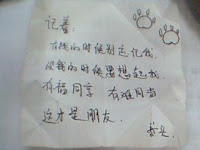 记着:
有钱的时候别忘记我.
没钱的时候要想起我.
有福同享 有难同当
这才是朋友.